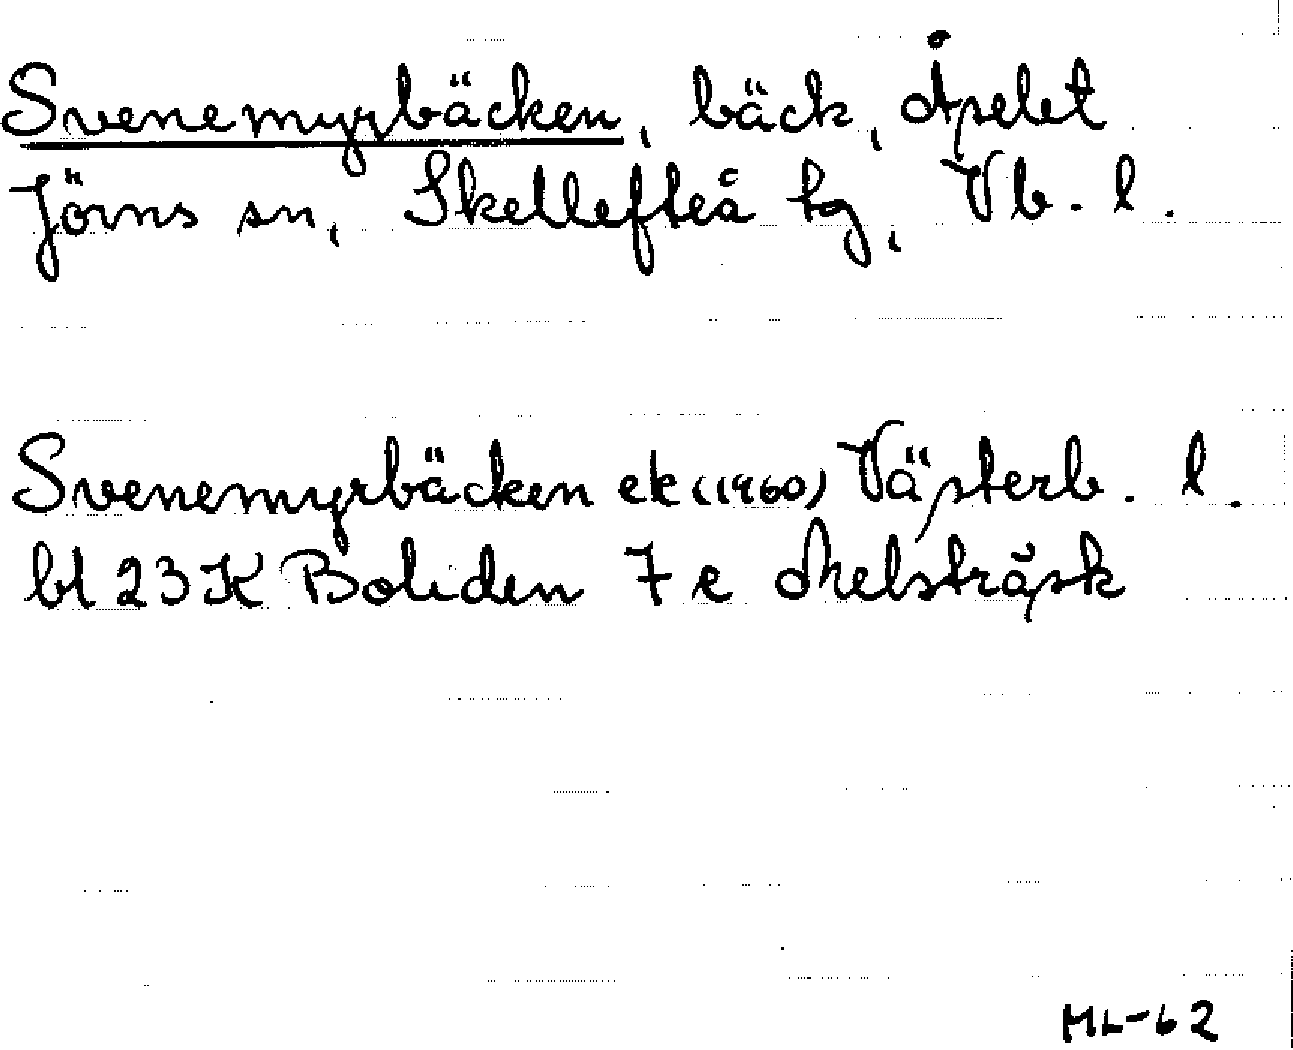 Svenemyrbäcken, bäck, Åselet
Jörns sn, Skellefteå tg, Vb. l.
Svenemyrbäcken ek (1960) Västerb. l.
bl 23 K Boliden 7 e Mebsträsk
ML-62